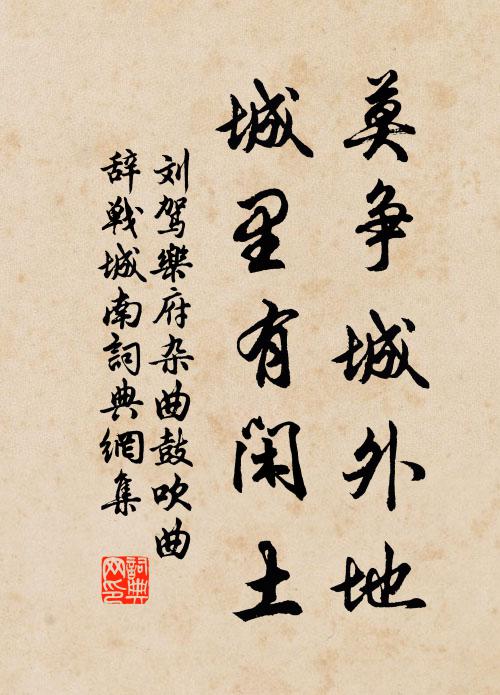 莫争城外地
城里有闲土
刘驾樂府杂曲鼓吹曲
辞戰城南詞典網集
詞典
网印